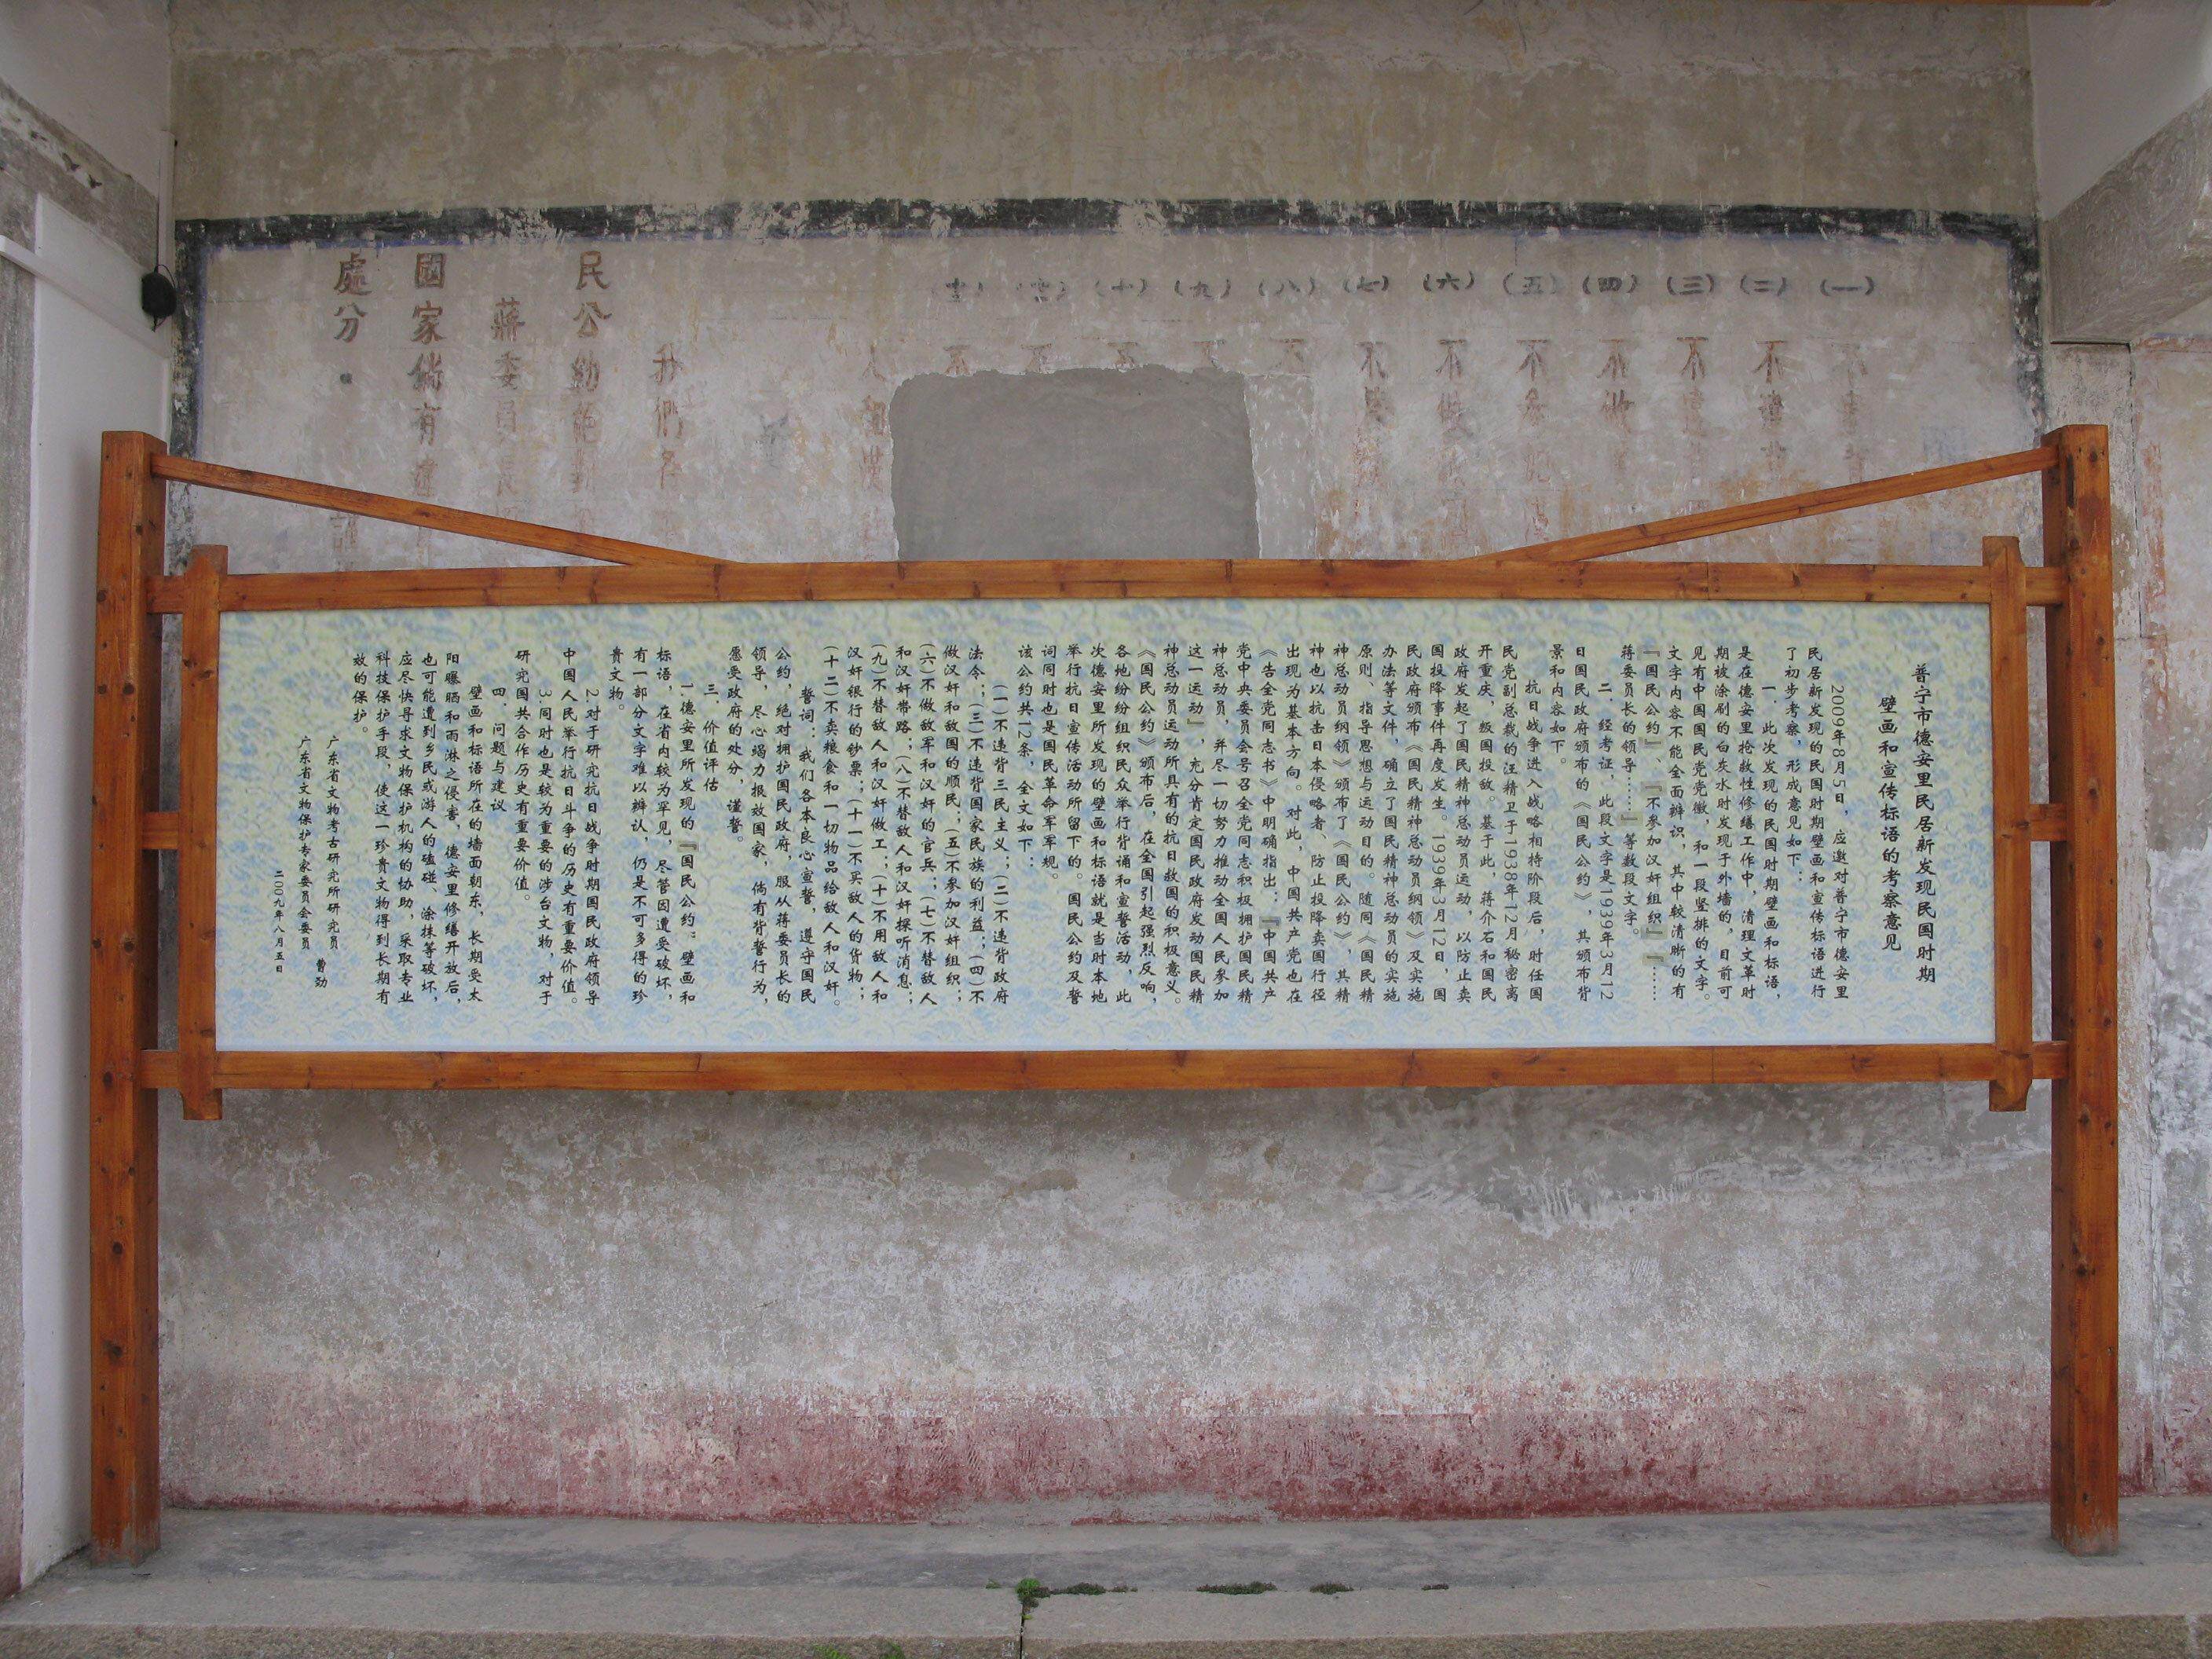 普宁市德安里民居新发现民国时期
壁画和宣传标语的考察意见
2009年8月5日，应邀对普宁市德安里
民居新发现的民国时期壁画和宣传标语进行
了初步考察，形成意见如下：
一、此次发现的民国时期壁画和标语，
是在德安里抢救性修缮工作中，清理文革时
期被涂刷的白灰水时发现于外墙的，目前可
见有中国国民党党徽，和一段竖排的文字。
文字内容不能全面辨识，其中较清晰的有
『国民公约』、『不参加汉奸组织』『……
蒋委员长的领导……』等数段文字。
二、经考证，此段文字是1939年3月12
日国民政府颁布的《国民公约》，其颁布背
景和内容如下。
抗日战争进入战略相持阶段后，时任国
民党副总裁的汪精卫于1938年12月秘密离
开重庆，叛国投敌。基于此，蒋介石和国民
政府发起了国民精神总动员运动，以防止卖
国投降事件再度发生。1939年3月12日，国
民政府颁布《国民精神总动员纲领》及实施
办法等文件，确立了国民精神总动员的实施
原则、指导思想与运动目的。随同《国民精
神总动员纲领》颁布了《国民公约》，其精
神也以抗击日本侵略者、防止投降卖国行径
出现为基本方向。对此，中国共产党也在
《告全党同志书》中明确指出：『中国共产
党中央委员会号召全党同志积极拥护国民精
神总动员，并尽一切努力推动全国人民参加
这一运动』，充分肯定国民政府发动国民精
神总动员运动所具有的抗日救国的积极意义。
《国民公约》颁布后，在全国引起强烈反响，
各地纷纷组织民众举行背诵和宣誓活动，此
次德安里所发现的壁画和标语就是当时本地
举行抗日宣传活动所留下的。国民公约及誓
词同时也是国民革命军军规。
该公约共12条，全文如下：
（一）不违背三民主义；（二）不违背政府
法令；（三）不违背国家民族的利益；（四）不
做汉奸和敌国的顺民；（五）不参加汉奸组织；
（六）不做敌军和汉奸的官兵；（七）不替敌人
和汉奸带路；（八）不替敌人和汉奸探听消息；
（九）不替敌人和汉奸做工；（十）不用敌人和
汉奸银行的钞票；（十一）不买敌人的货物；
（十二）不卖粮食和一切物品给敌人和汉奸。
誓词：我们各本良心宣誓，遵守国民
公约，绝对拥护国民政府，服从蒋委员长的
领导，尽心竭力报效国家，倘有背誓行为，
愿受政府的处分，谨誓。
三、价值评估
1.德安里所发现的『国民公约』壁画和
标语，在省内较为罕见，尽管因遭受破坏，
有一部分文字难以辨认，仍是不可多得的珍
贵文物。
2.对于研究抗日战争时期国民政府领导
中国人民举行抗日斗争的历史有重要价值。
3.同时也是较为重要的涉台文物，对于
研究国共合作历史有重要价值。
四、问题与建议
壁画和标语所在的墙面朝东，长期受太
阳曝晒和雨淋之侵害，德安里修缮开放后，
也可能遭到乡民或游人的磕碰、涂抹等破坏，
应尽快寻求文物保护机构的协助，采取专业
科技保护手段，使这一珍贵文物得到长期有
效的保护。
广东省文物考古研究所研究员
广东省文物保护专家委员会委员 曹劲
二00九年八月五日
(一) 不
(二) 不違
(三) 不違
(四) 不做
(五) 不參
(六) 不做
(七) 不
(八) 不
(九) 不
(十) 不
不
不
我們各
民公約絕對
蔣委員長
國家倘有違
處分．謹